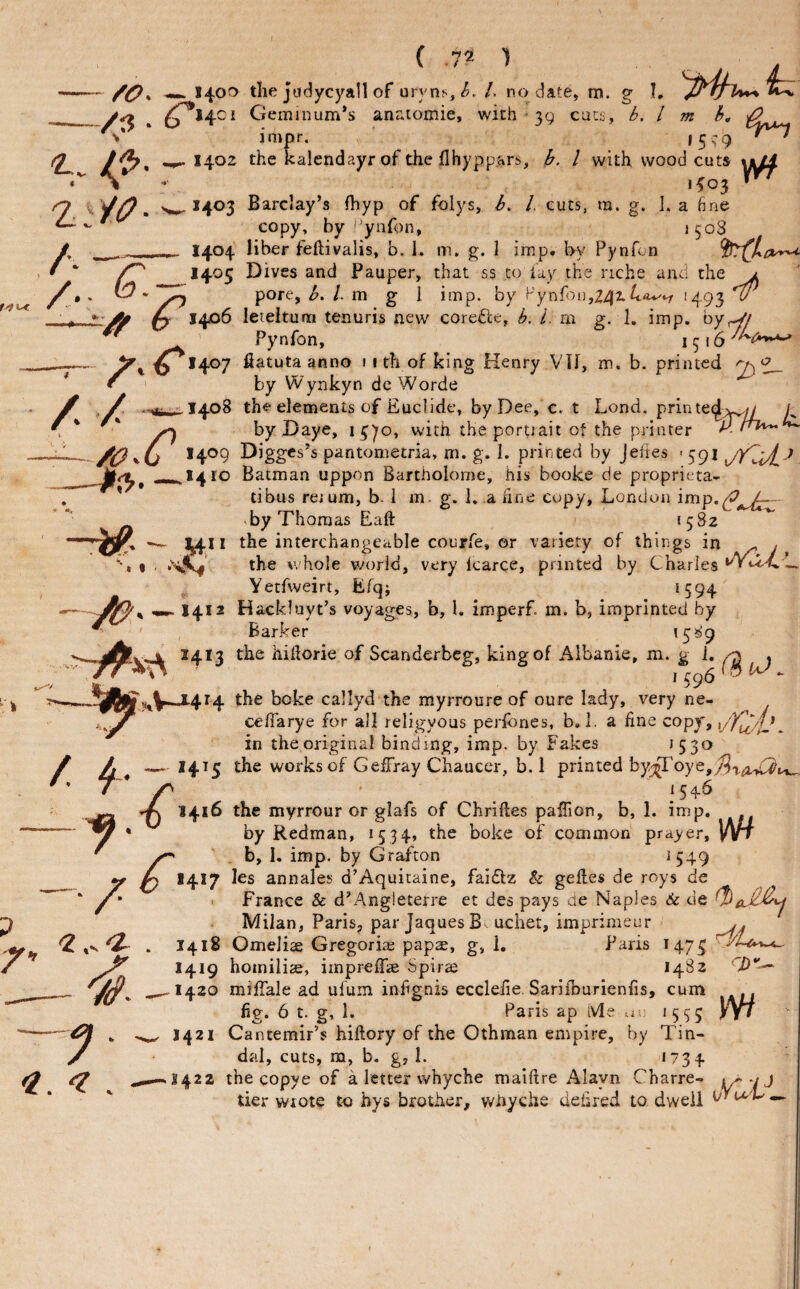 ( 72 )
10. 1400 the judycyall of uryns, b. l. no date, m. g l.
13. 6 1401 Geminum's anatomie, with 39 cuts, b. l m b.
impr. 1559
2. 1402 the kalendayr of the ſhyppars, b. l with wood cuts
1503
2 10. 1403 Barclay's ſhyp of folys, b. l. cuts, m. g. l. a fine
copy, by Pynſon, 1508
1. 1404 liber feſtivalis, b. l. m. g. l imp. by Pynſon
1405 Dives and Pauper, that ss to ſay the riche and the
pore, b. l. m g l imp. by Pynſon, 1493
6 1406 leteltum tenuris new corecte, b. l. m g. l. imp. by
Pynſon, 1516
7. 6 1407 ſtatuta anno 11th of king Henry VII, m. b. printed
by Wynkyn de Worde
1. 1. 1408 the elements of Euclide, by Dee, c. t Lond. printed
by Daye, 1570, with the portrait of the printer
10. 6 1409 Digges's pantometria, m. g. l. printed by Jeſſes 1591
1410 Batman uppon Bartholome, his booke de proprieta-
tibus rerum, b. l m. g. l. a fine copy, London imp.
by Thomas Eaſt 1582
1411 the interchangeable courſe, or variety of things in
the whole world, very ſcarce, printed by Charles
Yetſweirt, Eſq; 1594
10. 1412 Hackluyt's voyages, b, l. imperf. m. b, imprinted by
Barker 1589
1413 the hiſtorie of Scanderbeg, king of Albanie, m. g l.
1596
1414 the boke callyd the myrroure of oure lady, very ne-
ceſſarye for all religyous perſones, b. l. a fine copy,
in the original binding, imp. by Fakes 1530
1. 4. 1415 the works of Geffray Chaucer, b. l printed by Toye,
1546
9. 6 1416 the myrrour or glaſs of Chriſtes paſſion, b, l. imp.
by Redman, 1534, the boke of common prayer,
b, l. imp. by Grafton 1549
7. 6 1417 les annales d'Aquitaine, faictz & geſtes de roys de
France & d'Angleterre et des pays de Naples & de
Milan, Paris, par Jaques Bouchet, imprimeur
2. 2 . 1418 Omeliæ Gregoriæ papæ, g, l. Paris 1475
1419 homiliæ, impreſſæ Spiræ 1482
10. 1420 miſſale ad uſum inſignis eccleſie Sariſburienſis, cum
fig. 6 t. g, l. Paris ap Me 1555
9. 1421 Cantemir's hiſtory of the Othman empire, by Tin-
dal, cuts, m, b. g, l. 1734
2. 2 1422 the copye of a letter whyche maiſtre Alayn Charre-
tier wrote to hys brother, whyche deſired to dwell